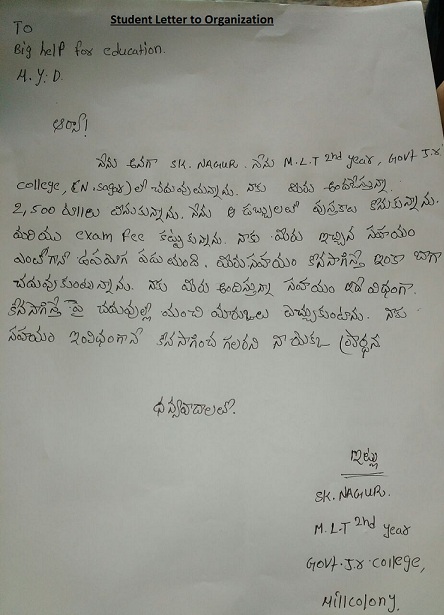 Student Letter to Organization
To
Big help for education.
H.Y.D.
ఆర్యా!
నేను అనగా SK. NAGUR. నేను M.L.T 2nd year, GOVT J.r
college, (N.sagar) లో చదువుతున్నాను. నాకు మీరు అందిస్తున్న
2,500 రూ॥లు తీసుకున్నాను. నేను ఆ డబ్బులతో పుస్తకాలు కొనుకున్నాను.
మరియు exam fee కట్టుకున్నాను. నాకు మీరు ఇచ్చిన సహాయం
ఎంతోగానో ఉపయోగ పడుతుంది. మీరు సహాయం కొనసాగిస్తే ఇంకా బాగా
చదువుకుంటున్నాను. నాకు మీరు అందిస్తున్న సహాయం ఇదే విధంగా.
కొనసాగిస్తే పై చదువుల్లో మంచి మార్కులు తెచ్చుకుంటాను. నాకు
సహాయం ఇంవిధంగానే కొనసాగించ గలరని నా యొక్క ప్రార్థన
ధన్యవాదాలతో.
ఇట్లు
SK. NAGUR.
M.L.T 2nd year
GOVT.J.r.college,
Hillcolony.